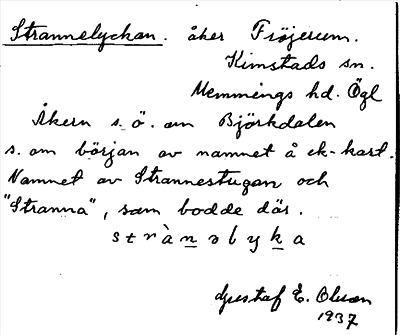 Strannelyckan. åker Fröjerum.
Kimstads sn.
Memmings hd. Ögl
Åkern s. ö. om Björkdalen
s. om början av namnet å ek-kart.
Namnet av Strannestugan och
"Stranna", som bodde där.
strànəlyka
Gustaf E. Olson
1937